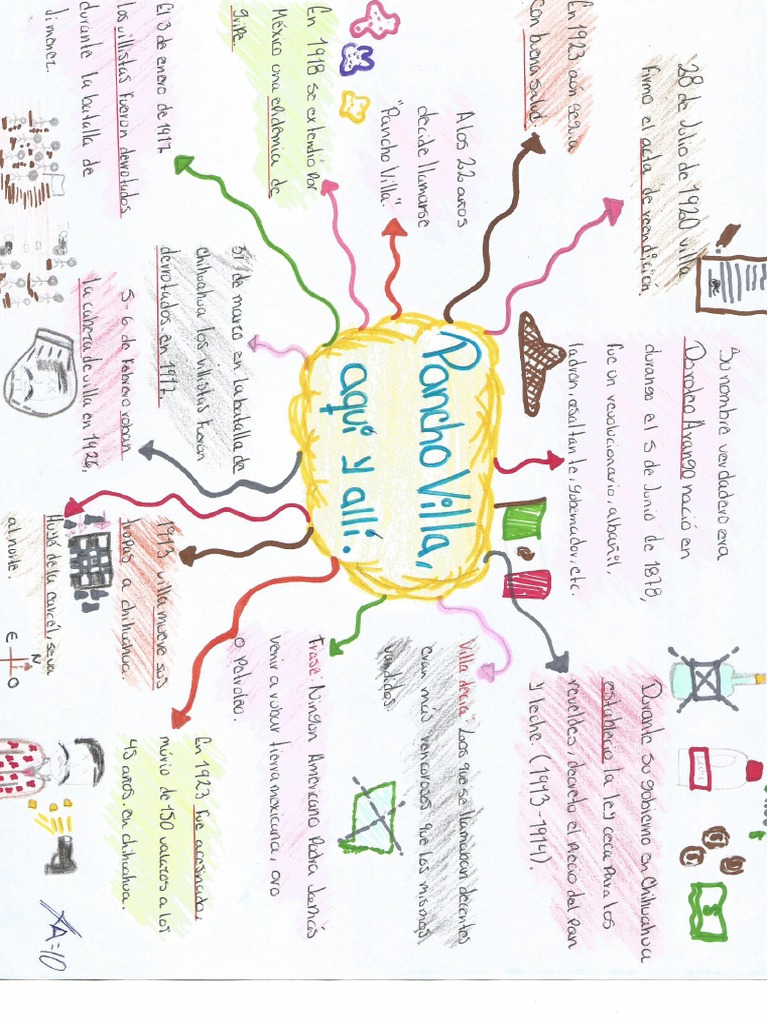 28 de Julio de 1920 villa
firmo el acta de reendicion.
Su nombre verdadero era
Doroteo Arango nació en
durango el 5 de Junio de 1878,
fue un revolucionario, albañil,
ladron, asaltante, gobernador, etc.
Durante su gobierno en Chihuahua
establecio la ley ceca para los
reveldes, decreto el precio del pan
y leche. (1913-1914).
En 1923 aún seguia
con buena salud.
A los 22 años
decide llamarse
"Pancho Villa."
Pancho Villa,
aquí y allí.
Villa decia: Loos que se llamaban decentes
eran más rencorosos que los mismos
vandidos.
En 1918 se extendió por
México una epidemia de
gripe.
Frase: Ningun Americano Podra Jamás
venir a robar tierra mexicana, oro
o Petroleo.
El 3 de enero de 1917
los villistas fueron derrotados
durante la batalla de
Jimenez.
31 de marzo en la batalla de
chihuahua los villistas fueron
derrotados. en 1917.
5-6 de Febrero roban
la cabeza de villa en 1926.
1913 villa mueve sus
tropas a chihuahua.
Huyó de la carcel, se va
al norte.
N
E
O
En 1923 fue asesinado,
múrio de 150 valazos a los
45 años. en chihuahua.
A=10